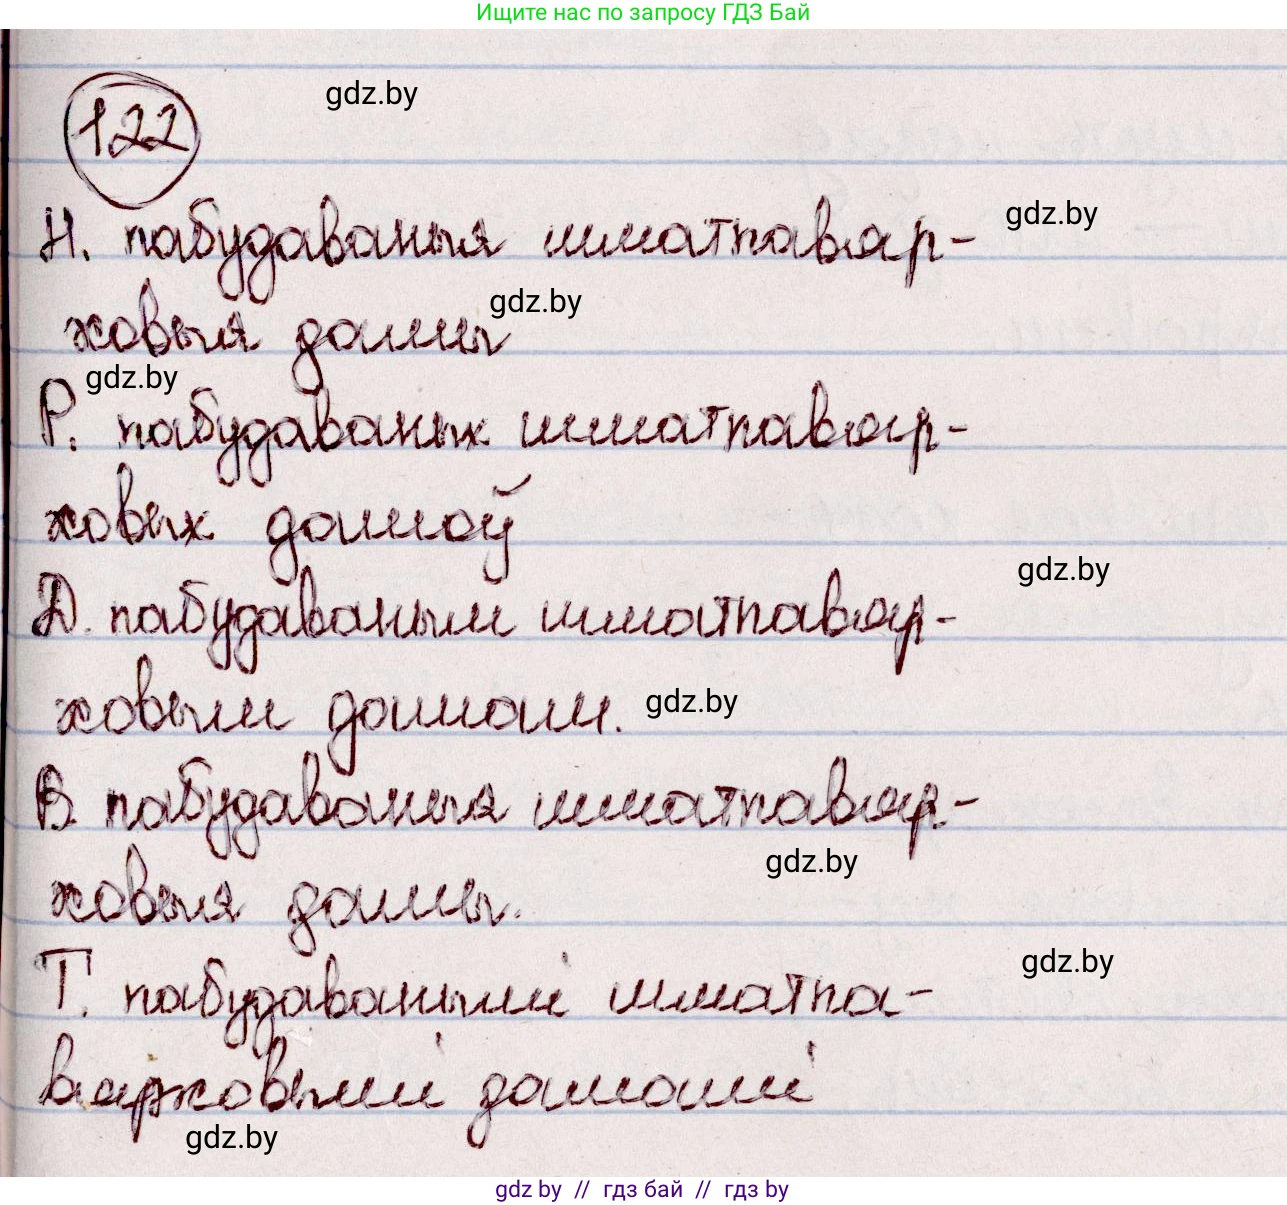 Ищите нас по запросу ГДЗ Бай
122
gdz.by
Н. пабудаваныя шматпавяр-
gdz.by
ховыя дамы
gdz.by
gdz.by
Р. пабудаваных шматпавяр-
ховых дамоў
gdz.by
Д. пабудаваным шматпавяр-
ховым дамам.
gdz.by
В. пабудаваныя шматпавяр-
gdz.by
ховыя дамы.
gdz.by
Т. пабудаванымі шматпа-
вярховымі дамамі
gdz.by
gdz by // гдз бай // гдз by